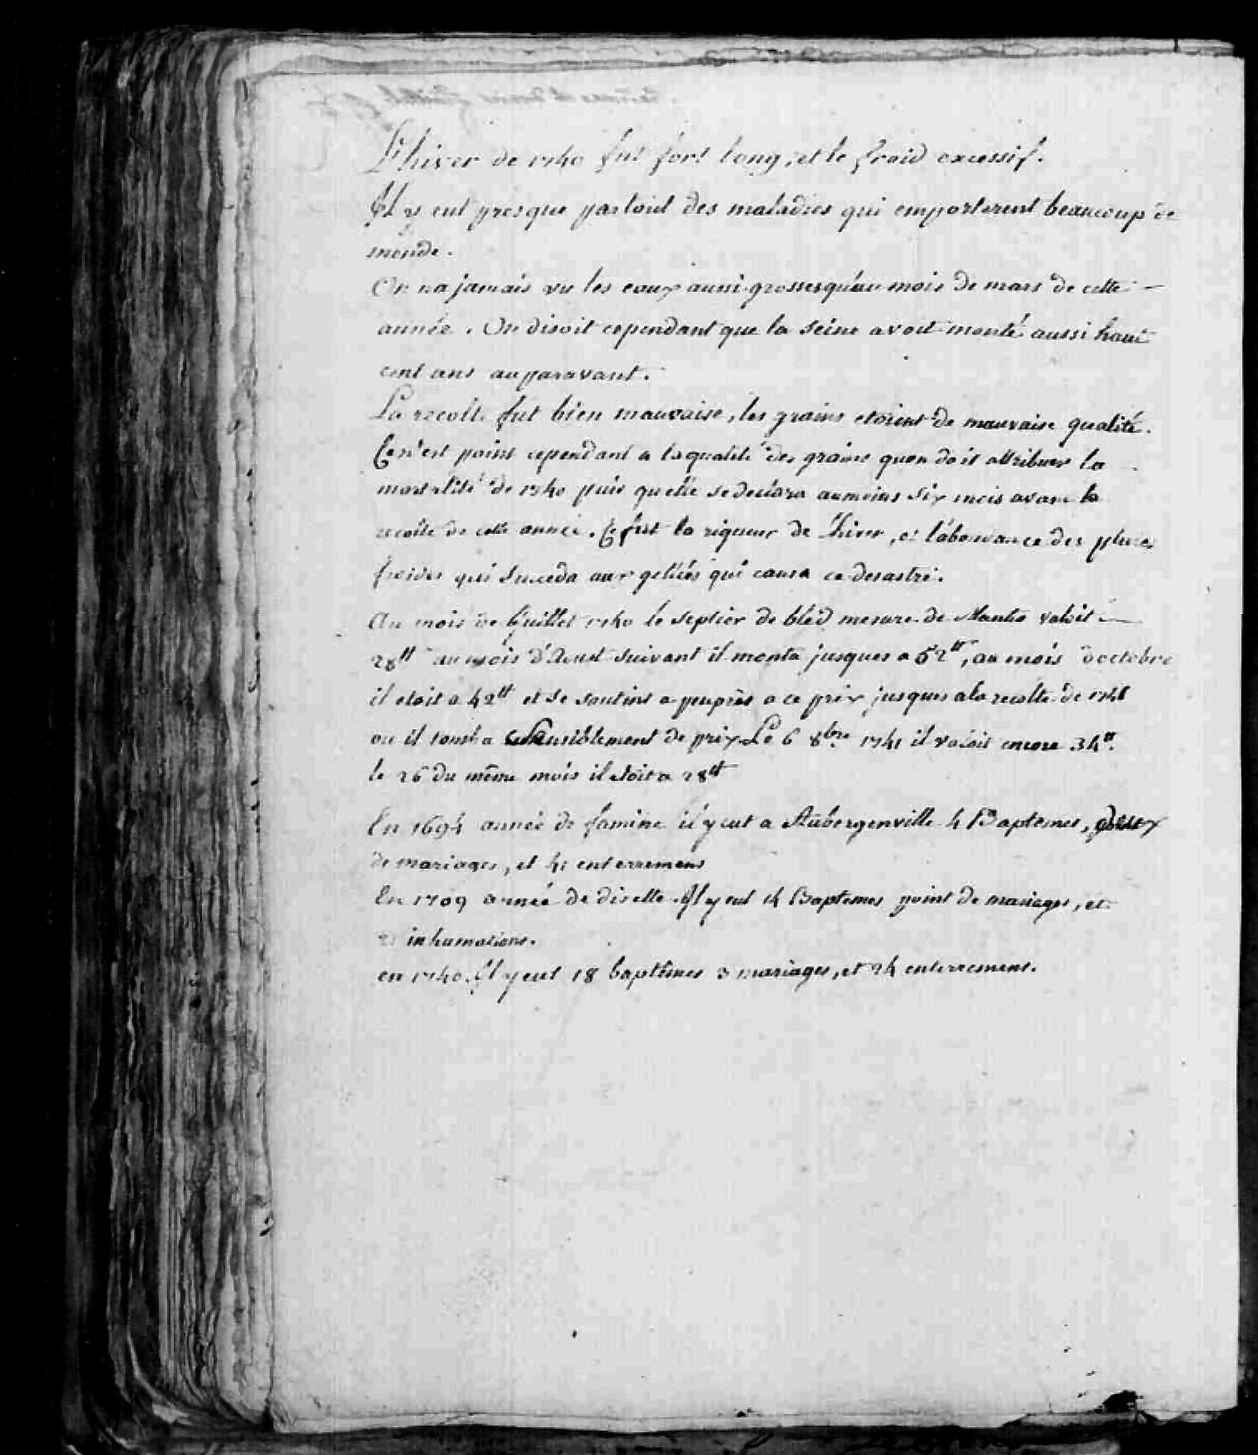 L'hiver de 1740 fut fort long, et le froid excessif.
Il y eut presque partout des maladies qui emporterent beaucoup de
monde.
On na jamais vu les eaux aussi grosses qu'au mois de mars de cette
année. On disoit cependant que la seine avoit monté aussi haut
cent ans auparavant.
La recolte fut bien mauvaise, les grains etoient de mauvaise qualité.
Ce n'est point cependant a la qualité des grains quon doit attribuer la
mortalité de 1740 puis quelle se declara aumoins six mois avant la
recolte de cette année. Ce fut la rigueur de l'hiver, et l'abondance des pluies
froides qui succeda aux gelées qui causa ce desastre.
Au mois de Juillet 1740 le septier de bled mesure de Mantes valoit
28tt au mois d'Aoust suivant il monta jusques a 52tt, au mois doctobre
il etoit a 42tt et se soutint a peuprès a ce prix jusques ala recolte de 1741
ou il tomba sensiblement de prix. Le 6 8bre 1741 il valoit encore 34tt.
le 26 du même mois il etoit a 28tt
En 1694 année de famine il y eut a Aubergenville 4 Baptemes,
de mariages, et 41 enterremens
En 1709 année de disette. Il y eut 14 Baptemes point de mariages, et
inhumations.
en 1740. Il y eut 18 baptêmes 3 mariages, et 24 enterremens.